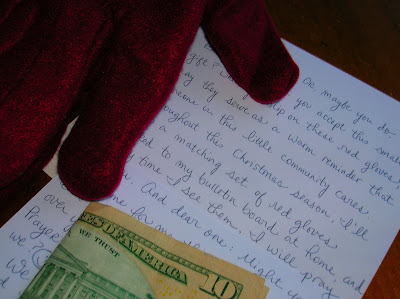 Or, maybe you do
gift? you accept this small
slip on these red gloves,
may they serve as a warm reminder that
someone in this little community cares
throughout this Christmas season. I'll
a matching set of red gloves
to my bulletin board at home and
time I see them, I will pray
over you. And dear one: Might you
one for me
we?
We
ES OF AMERICA 10
WE TRUST